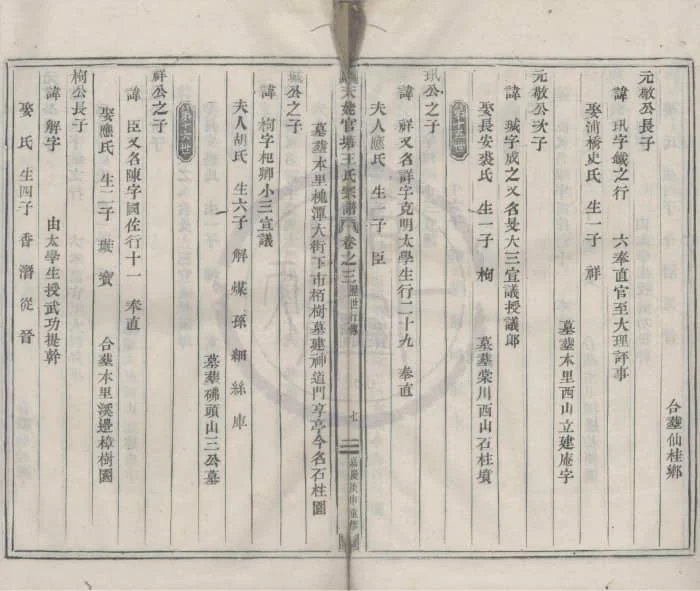 合塟仙桂鄉
元敬公長子
諱 玑字鐡之行 六奉直官至大理評事
娶浦橋史氏 生一子 祥
墓塟木里西山立建庵宇
元敬公次子
諱 珹字成之又名旻大三宣議授議郎
娶長安裘氏 生一子 枸 墓塟棠川西山石柱墳
第十五世
玑公之子
諱 祥又名詳字克明太學生行二十九 奉直
夫人應氏 生一子 臣
天台官塘王氏宗譜 卷之三 歷世行傳 七 嘉慶
墓塟木里槐潭大街下市栢樹墓建神道門享亭今名石柱園
珹公之子
諱 枸字杞卿小三宣議
夫人胡氏 生六子 解 媒 孫 細 絲 庫
墓塟磗頭山三公墓
第十六世
祥公之子
諱 臣又名陳字國佐行十一 奉直
娶應氏 生二子 璇 寳 合塟木里溪邊樟樹園
枸公長子
諱 解字 由太學生授武功提幹
娶 氏 生四子 香 潛 從 晉